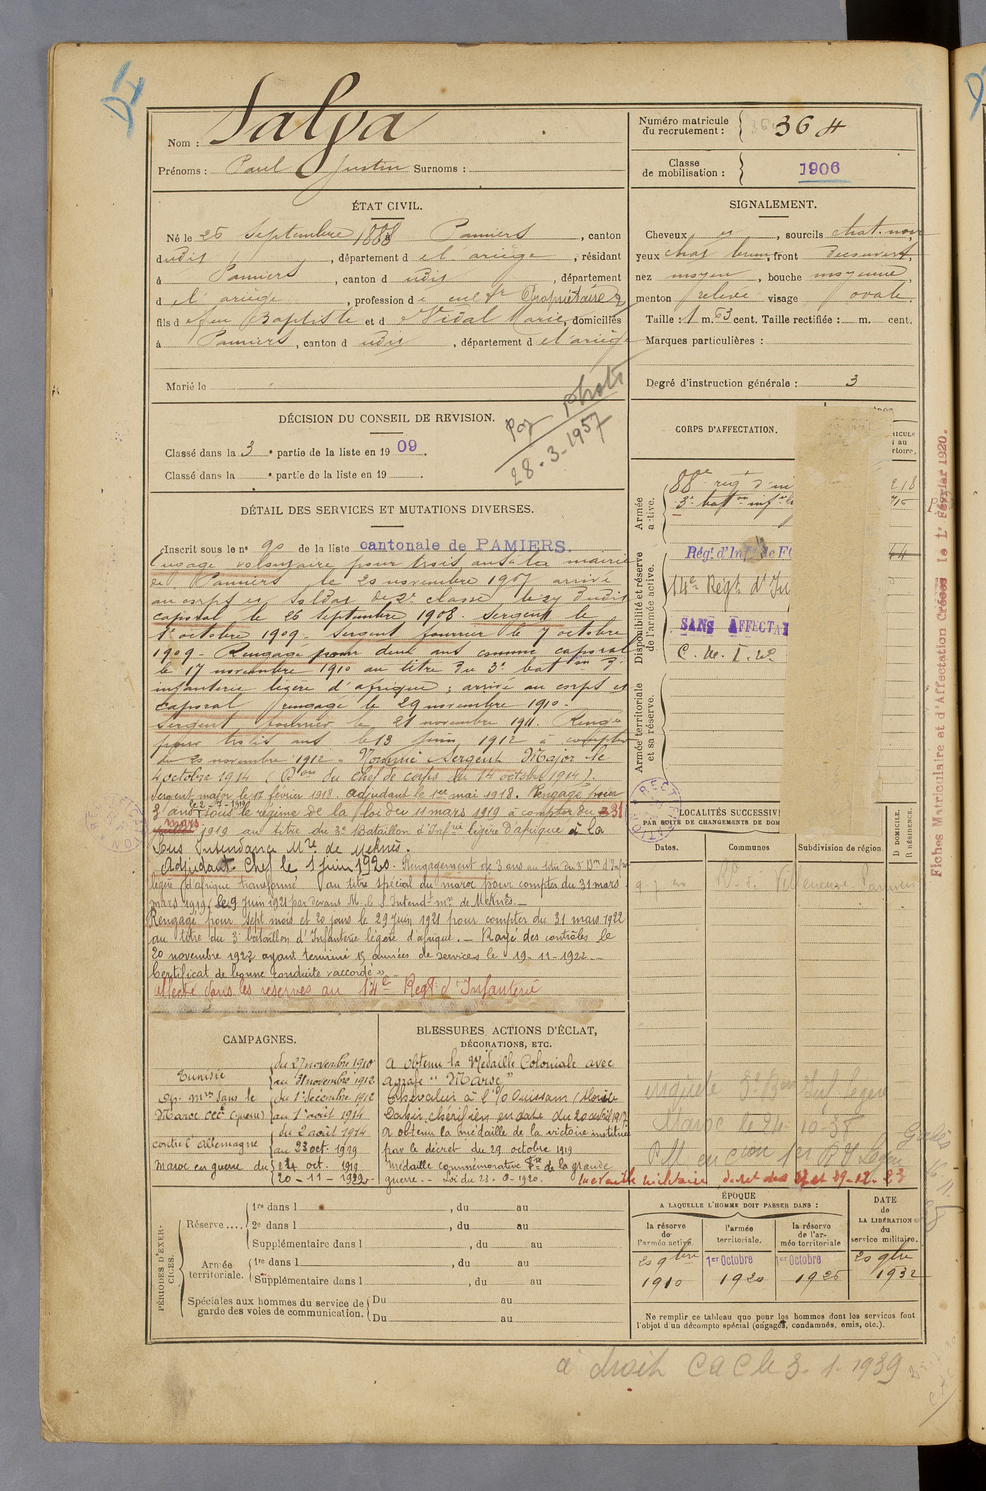 Nom : Salga
Prénoms : Paul Justin Surnoms :
Numéro matricule du recrutement : 364
Classe de mobilisation : 1906
ÉTAT CIVIL.
Né le 26 Septembre 1888 à Pamiers, canton
dudit, département de l'ariège, résidant
à Pamiers, canton dudit, département
de l'ariège, profession de cultr Propriétaire
fils de feu Baptiste et de Vidal Marie, domiciliés
à Pamiers, canton dudit, département de l'ariège
Marié le
SIGNALEMENT.
Cheveux et, sourcils chat. noir,
yeux chat brun, front découvert,
nez moyen, bouche moyenne,
menton relevé visage ovale.
Taille : 1 m. 63 cent. Taille rectifiée : m. cent.
Marques particulières :
Degré d'instruction générale : 3
DÉCISION DU CONSEIL DE REVISION.
Classé dans la 3e partie de la liste en 1909.
Classé dans la e partie de la liste en 19
Par photo
28.3.1957
DÉTAIL DES SERVICES ET MUTATIONS DIVERSES.
Inscrit sous le n° 90 de la liste cantonale de PAMIERS.
Engagé volontaire pour trois ans à la mairie
de Pamiers le 20 novembre 1907 arrivé
au corps et soldat de 2e classe le 27 dudit
caporal le 26 septembre 1908. Sergent le
1 octobre 1909. Sergent fourrier le 7 octobre
1909. Rengagé pour deux ans comme caporal
le 17 novembre 1910 au titre du 3e batton d'
infanterie légère d'afrique ; arrivé au corps et
caporal rengagé le 29 novembre 1910.
Sergent fourrier le 21 novembre 1911. Rengagé
pour trois ans le 13 juin 1912 à compter
du 20 novembre 1912. Nommé Sergent Major le
4 octobre 1914 (Don du chef de corps du 14 octobre 1914).
Sergent major le 17 février 1918. adjudant le 1er mai 1918. Rengagé pour
3 ans sous le régime de la loi du 11 mars 1919 à compter du 31
mars 1919 au titre du 3e Bataillon d'Infrie légère d'afrique à la
Sous Intendance Mre de Meknès.
Adjudant Chef le 1 juin 1920. Rengagement de 3 ans au titre du 3e Bon d'Infrie
légère d'afrique transformé au titre spécial du maroc pour compter du 31 mars
mars 1919, le 9 juin 1921 par devant M. le S Intendt mre de Meknès.
Rengagé pour sept mois et 20 jours le 29 juin 1921 pour compter du 31 mars 1922
au titre du 3e bataillon d'Infanterie légère d'afrique. Rayé des contrôles le
20 novembre 1922 ayant terminé 15 années de services le 19-11-1922.
Certificat de bonne conduite "accordé".
affecté dans les réserves au 14e Regt d'Infanterie
CORPS D'AFFECTATION.
Armée active.
88e regt d'in
3e batton inf
Disponibilité et réserve de l'armée active.
Régt d'Infie de FO
14e Regt d'In
SANS AFFECTAT
Armée territoriale et sa réserve.
LOCALITÉS SUCCESSIV
PAR SUITE DE CHANGEMENTS DE DOM
Dates. Communes Subdivision de région. D DOMICILE. R RÉSIDENCE.
Villeneuve Pamiers
Maroc le 24-10-35
Fiches Matriculaire et d'Affectation Créées le 1er Février 1920.
CAMPAGNES.
Tunisie du 27 novembre 1910
au 31 novembre 1912
Op. mres dans le du 1er décembre 1912
Maroc occal (guerre) au 1er août 1914
contre l'allemagne du 2 août 1914
au 23 oct. 1919
Maroc en guerre du 24 oct. 1919
20-11-1922
BLESSURES, ACTIONS D'ÉCLAT,
DÉCORATIONS, ETC.
a obtenu la Médaille Coloniale avec
agrafe "Maroc"
Chevalier à l'O Ouissam Alaouite
Dahir chérifien en date du 20 avril 1917
a obtenu la médaille de la victoire instituée
par le décret du 29 octobre 1919
Médaille commémorative fse de la grande
guerre. Loi du 23.6.1920.
Médaille militaire, décret du 29-12-23
PÉRIODES D'EXERCICES.
Réserve .... 1re dans l , du au
2e dans l , du au
Supplémentaire dans l , du au
Armée territoriale. 1re dans l , du au
Supplémentaire dans l , du au
Spéciales aux hommes du service de garde des voies de communication. Du au
Du au
ÉPOQUE
A LAQUELLE L'HOMME DOIT PASSER DANS :
la réserve de l'armée active. l'armée territoriale. la réserve de l'armée territoriale
DATE DE LA LIBÉRATION du service militaire.
20 9bre 1910 1er Octobre 1920 1er Octobre 1926 20 9bre 1932
Ne remplir ce tableau que pour les hommes dont les services font
l'objet d'un décompte spécial (engagés, condamnés, omis, etc.).
a droit CAC le 3.1.1939